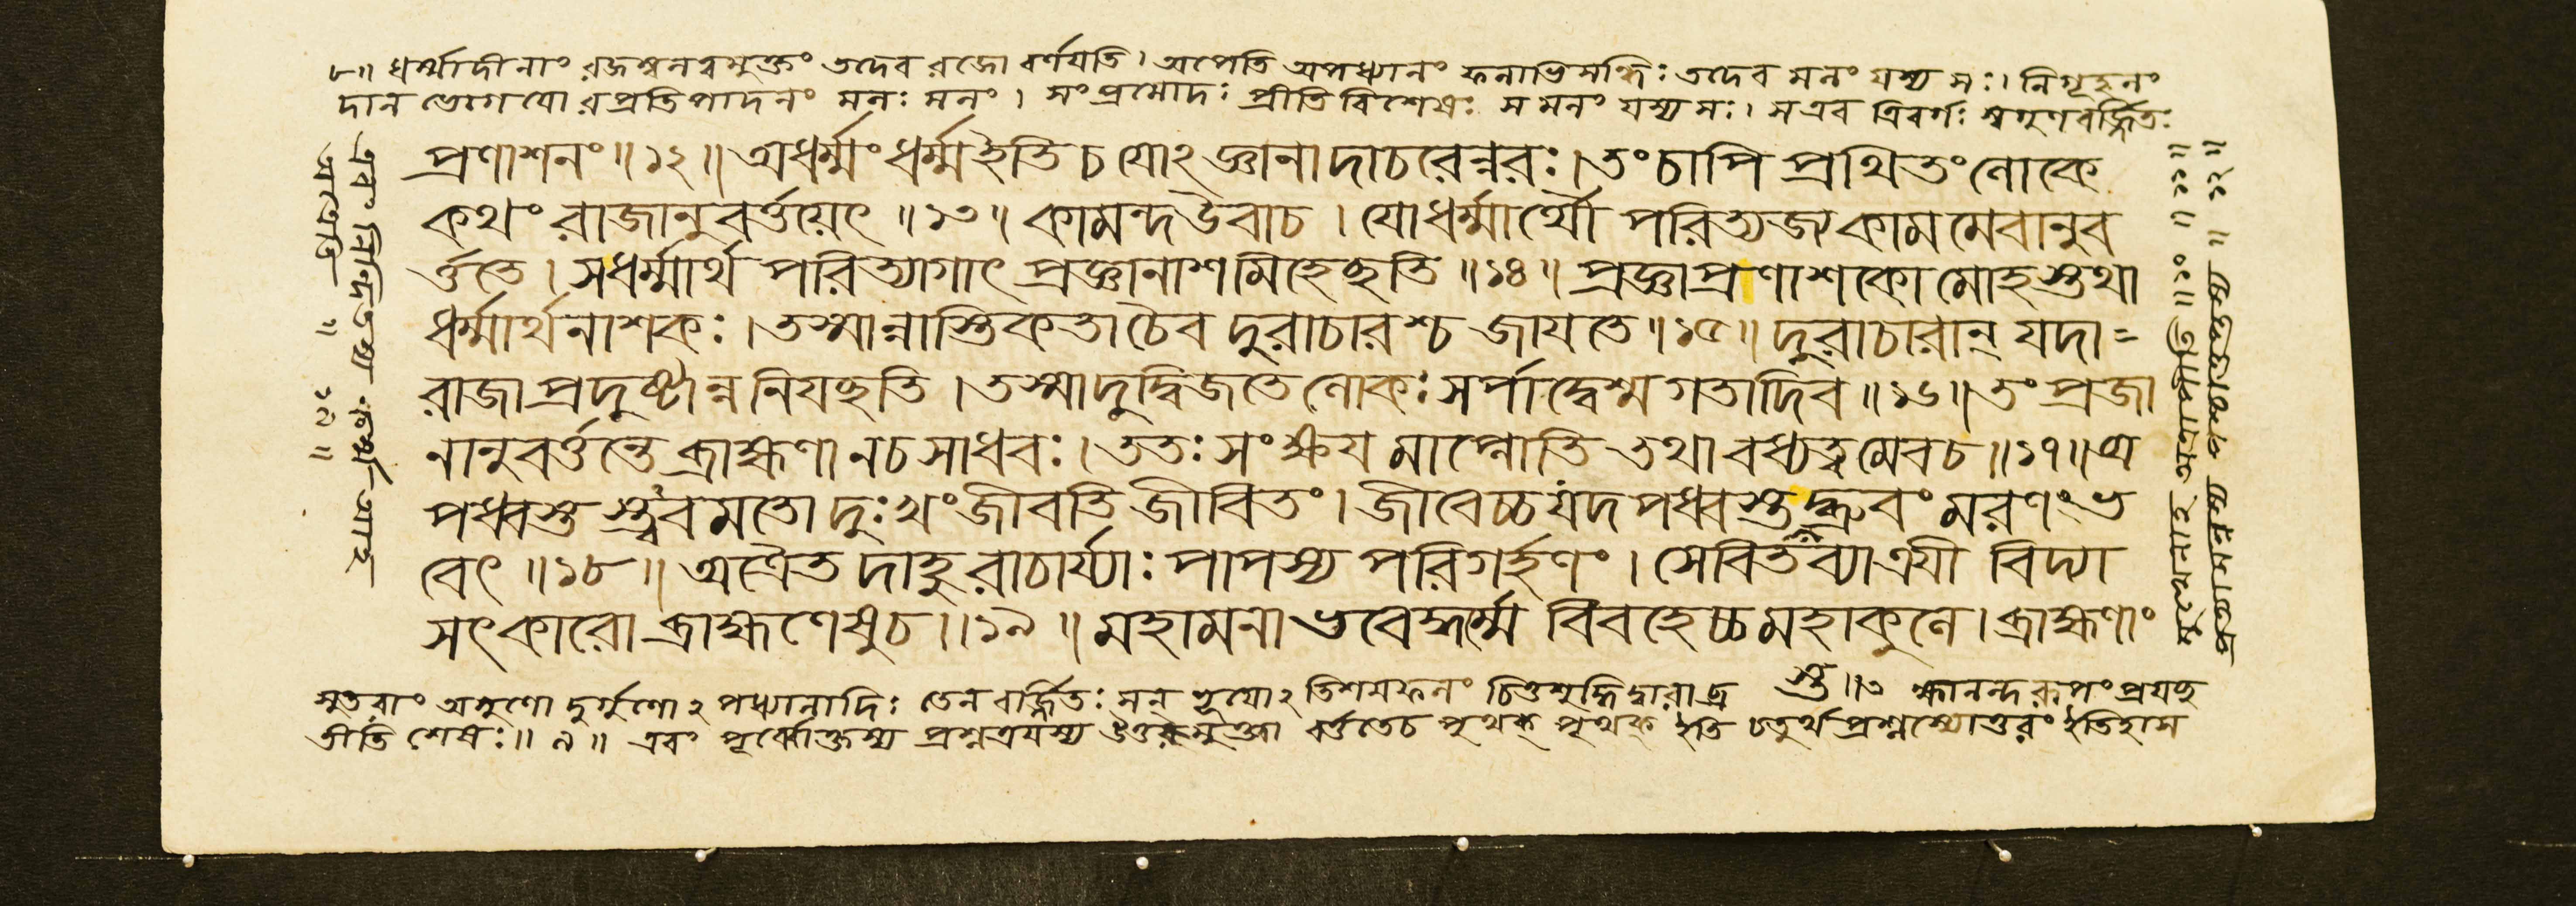 ৮॥ ধর্ম্মাদীনাং রজস্বলত্বমুক্তং তদেব রজো বর্ণয়তি। অপেতি অপধ্যানং ফলাভিসন্ধিঃ তদেব মলং যস্য সঃ। নিগূহনং
দান ভোগয়োরপ্রতিপাদনং মলঃ মলং। সংপ্রমোদঃ প্রীতিবিশেষঃ স মলং যস্য সঃ। স এব ত্রিবর্গঃ স্বগুণবর্জ্জিতঃ
প্রণাশনং॥১২॥ অধর্ম্মং ধর্ম্মইতি চ যোঽজ্ঞানাদাচরেন্নরঃ। তং চাপি প্রথিতং লোকে
কথং রাজানুবর্ত্তয়েৎ॥১৩॥ কামন্দউবাচ। যোধর্ম্মার্থৌ পরিত্যজ্য কামমেবানুব
র্ত্ততে। সধর্ম্মার্থ পরিত্যাগাৎ প্রজ্ঞানাশমিহেচ্ছতি॥১৪॥ প্রজ্ঞাপ্রণাশকো মোহস্তথা
ধর্ম্মার্থনাশকঃ। তস্মান্নাস্তিকতাচৈব দুরাচারশ্চ জায়তে॥১৫॥ দুরাচারান্ যদা=
রাজা প্রদুষ্টান্ন নিযচ্ছতি। তস্মাদুদ্বিজতে লোকঃ সর্পাদ্বেশ্মগতাদিব॥১৬॥ তং প্রজা
নানুবর্ত্তন্তে ব্রাহ্মণা নচ সাধবঃ। ততঃ সংক্ষয়মাপ্নোতি তথা বধ্যত্বমেবচ॥১৭॥ অ
পধ্বস্ত স্ত্ববমতো দুঃখং জীবতি জীবিতং। জীবেচ্চ যদপধ্বস্তস্তদ্ধ্রুবং মরণং ভ
বেৎ॥১৮॥ অত্রৈতদাহুরাচার্য্যাঃ পাপস্য পরিগর্হণং। সেবিতব্যা ত্রয়ী বিদ্যা
সৎকারো ব্রাহ্মণেষুচ॥১৯॥ মহামনা ভবেদ্ধর্ম্মে বিবহেচ্চ মহাকুলে। ব্রাহ্মণাং
সুতরাং অগুণো দুর্গুণোঽপধ্যানাদিঃ তেন বর্জ্জিতঃ সন্ ভূয়োঽতিশয়ফলং চিত্তশুদ্ধিদ্বারা ব্র স্ত॥৩ হ্মানন্দরূপং প্রযচ্ছ
তীতি শেষঃ॥৯॥ এবং পূর্ব্বোক্তস্য প্রশ্নত্রয়স্য উত্তরমুক্ত্বা বর্ত্ততেচ পৃথক্ পৃথক্ ইতি চতুর্থপ্রশ্নস্যোত্তরং ইতিহাস
এবং নিন্দিতস্য কথং